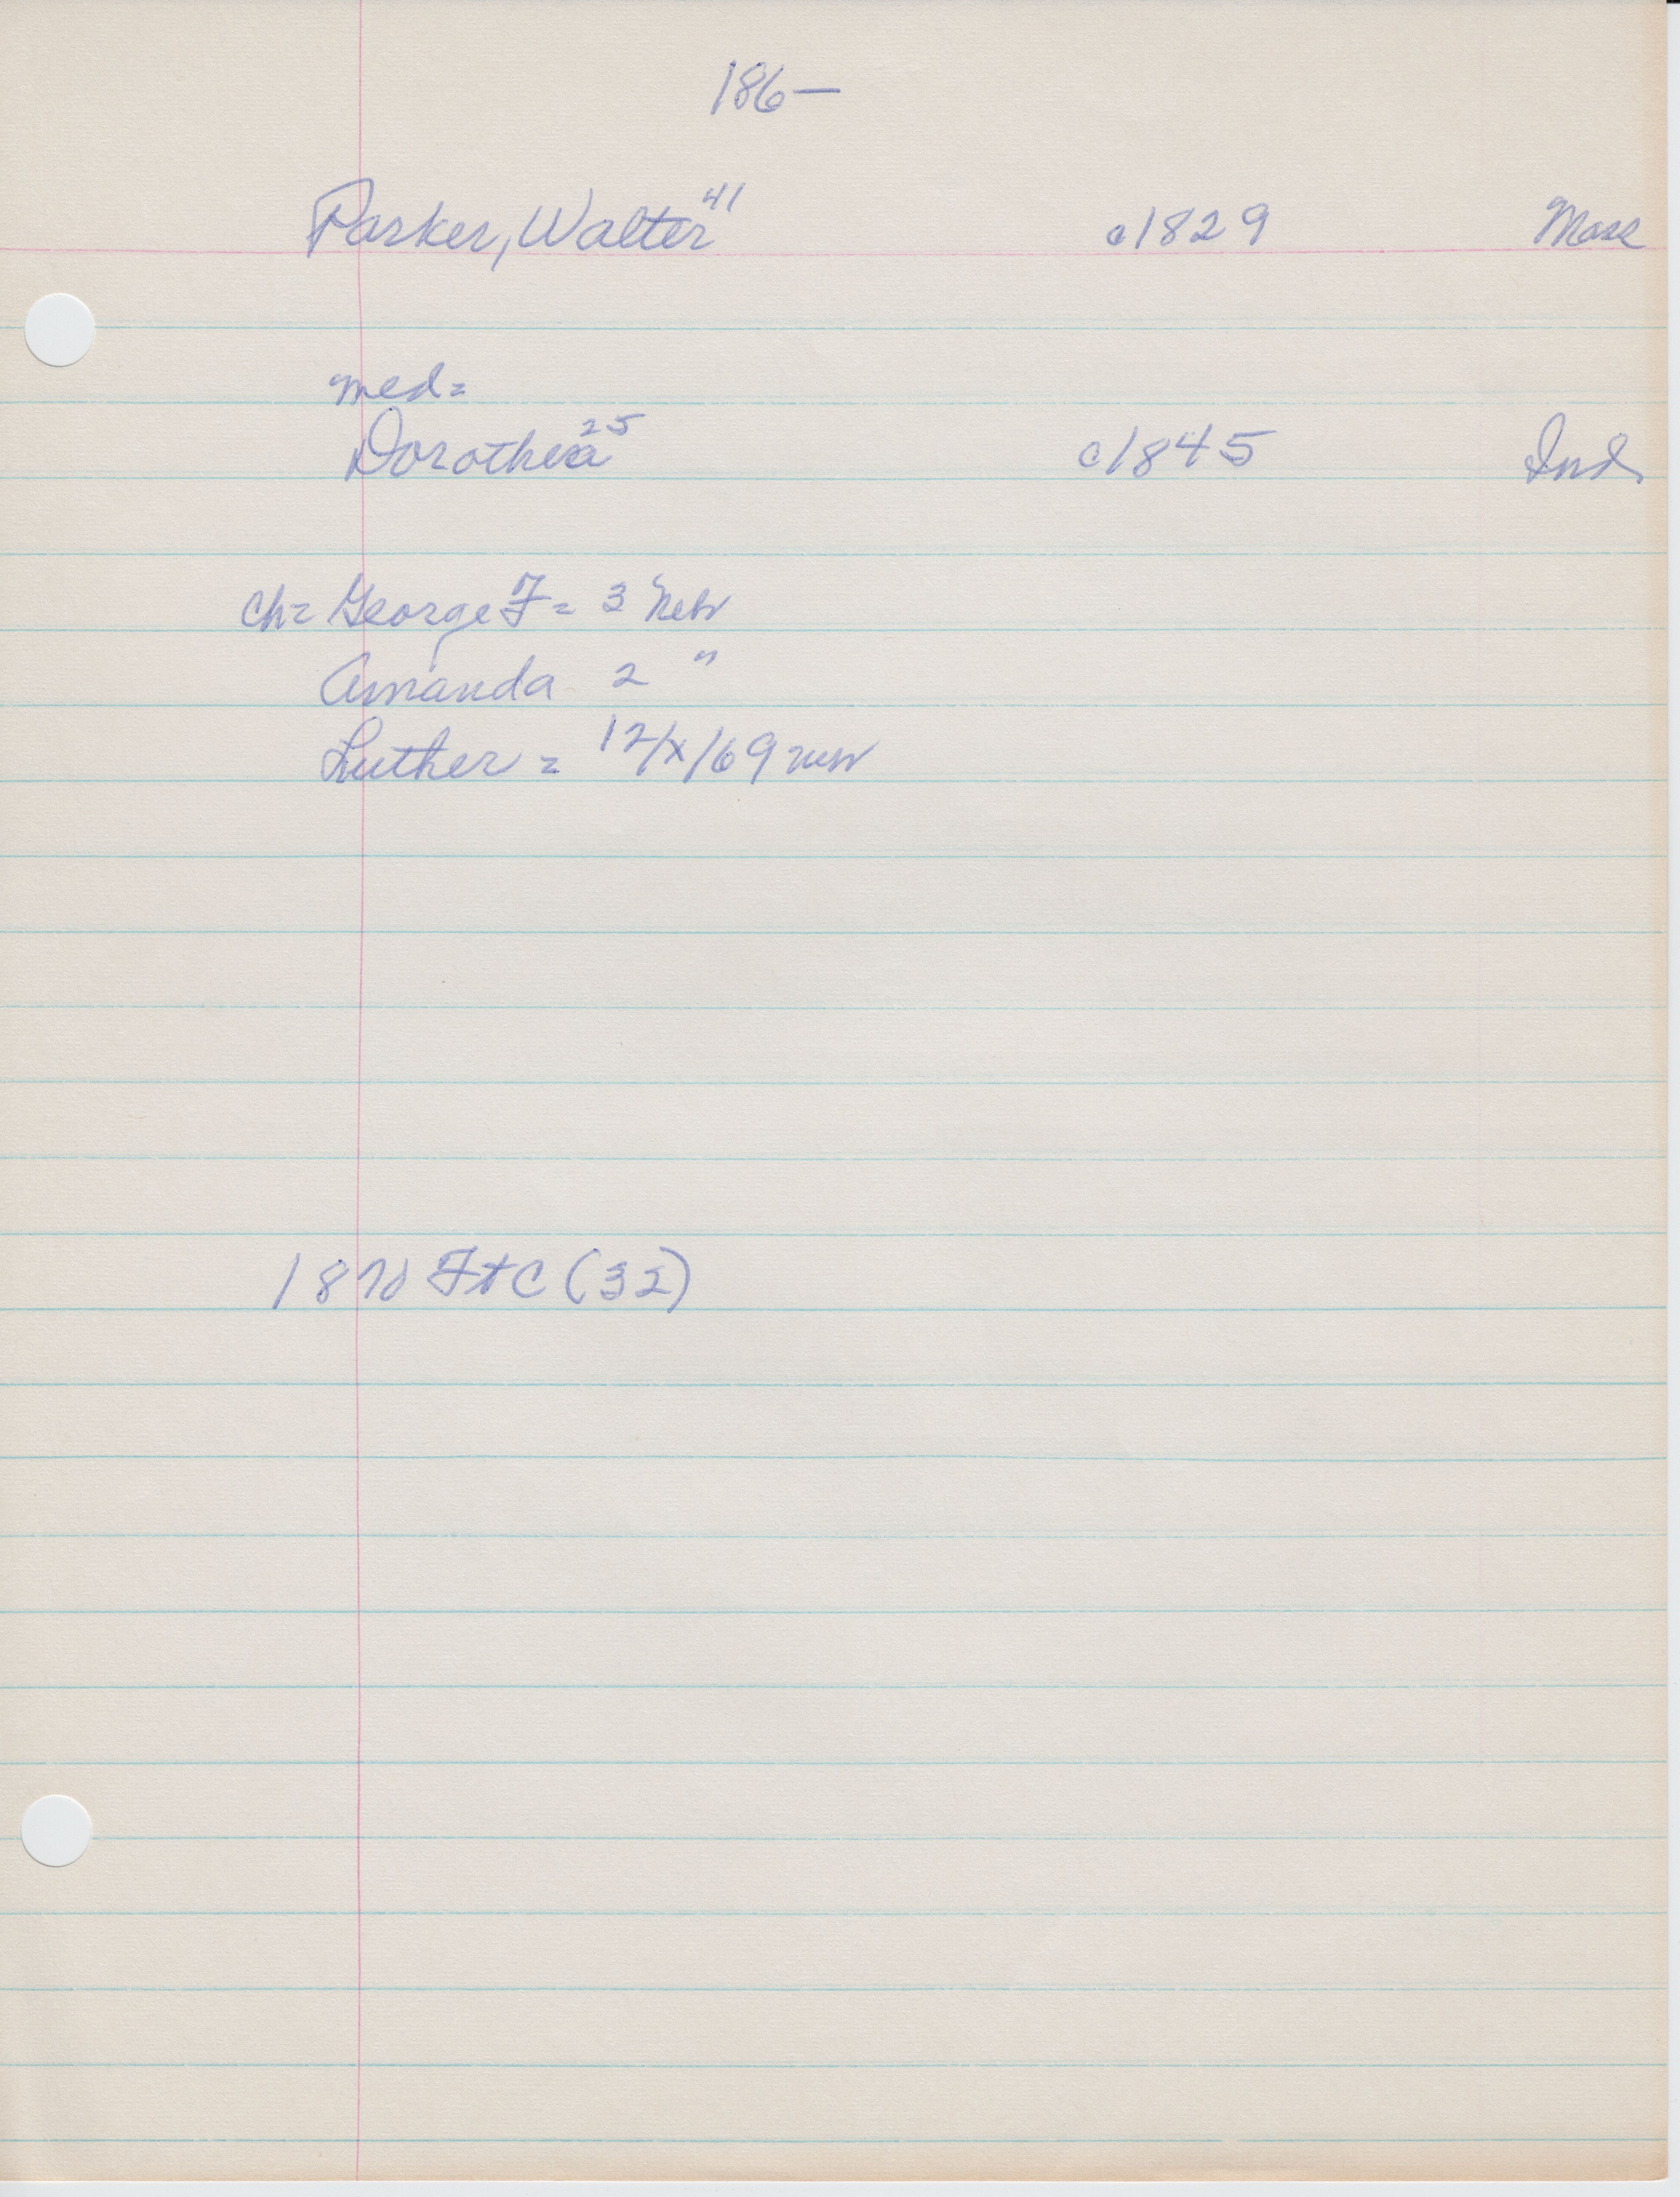 186—
Parker, Walter 41 c1829 Mass
med=
Dorothea 25 c1845 Ind
ch= George F= 3 Neb
Amanda 2 "
Luther = 12/x/69
1870 (32)